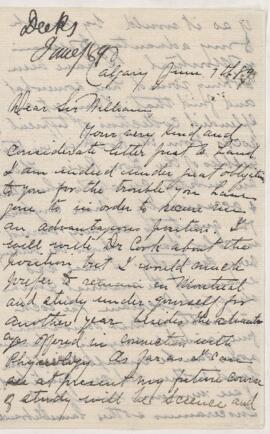 Deeks
June/89
Calgary June 7th 89
Dear Sir William
Your very kind and
considerate letter just to hand
I am indeed under great obligation
to you for the trouble you have
gone to in order to secure me
an advantageous position. I
will write Dr Cook about the
position but I would much
prefer to remain in Montreal
and study under yourself for
another year besides the advanta
ges offered in connection with
Physiology. As far as I can
see at present my future course
of study will be Science and